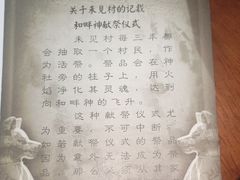 关于来见村的记载
和畔神献祭仪式
来见村每三年都
会抽取一个村民，作
为活祭。祭品会在神
社旁的柱子上，用火
焰净化其灵魂，达到
和畔神的飞升。
这种献祭仪式尤
为重要，不可中断。
如若献祭仪式的祭品
因为意外无法成为祭